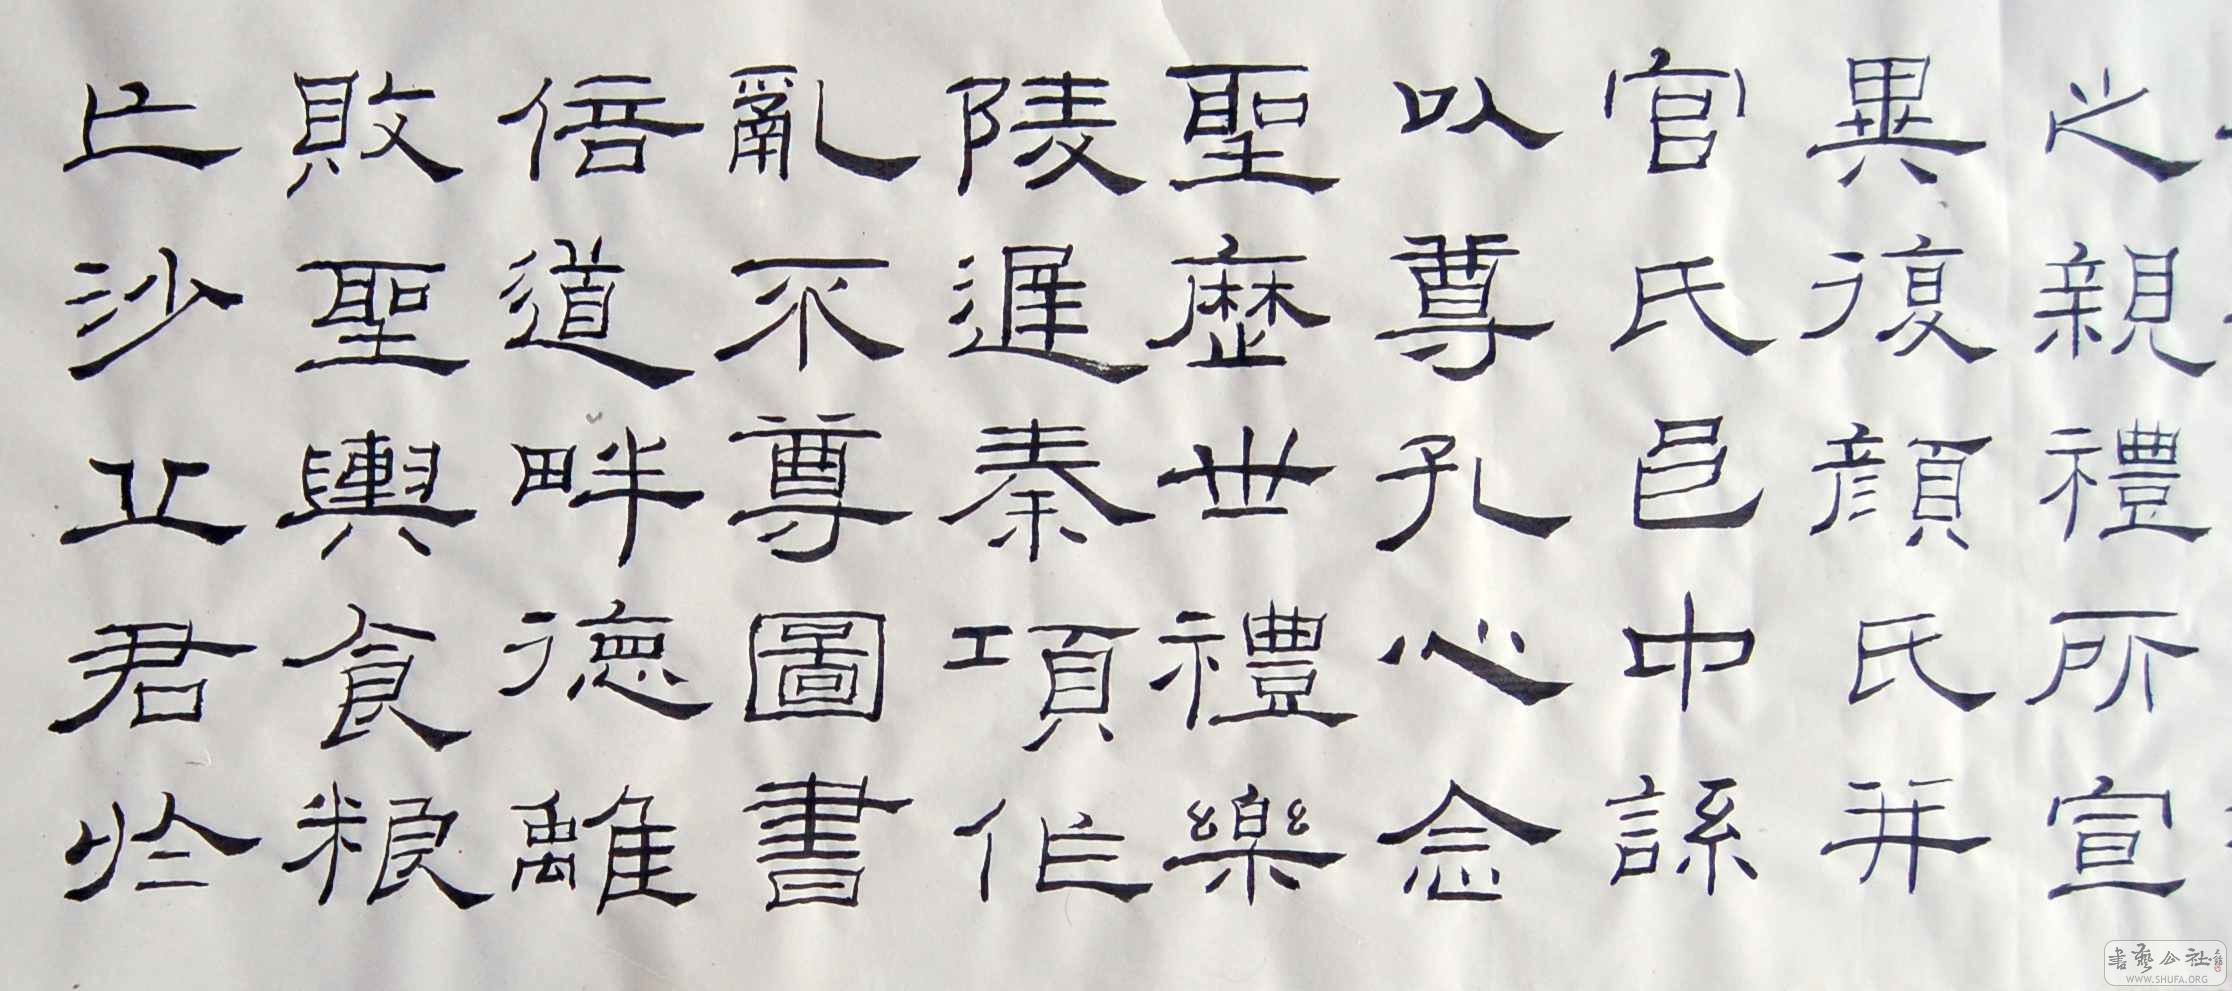 之親禮所宜
異復顏氏并
官氏邑中繇
以尊孔心念
聖歷世禮樂
陵遲秦項作
亂不尊圖書
倍道畔德離
敗聖輿食糧
亡沙丘君於
書藝公社
WWW.SHUFA.ORG